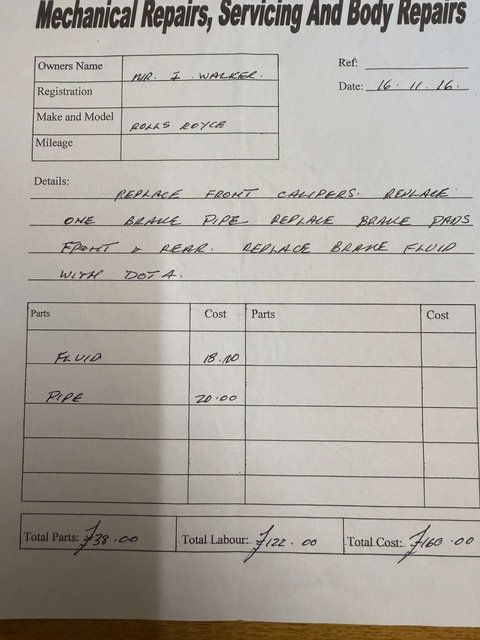 Mechanical Repairs, Servicing And Body Repairs
Owners Name MR. I. WALKER.
Ref:
Registration
Date: 16.11.16.
Make and Model ROLLS ROYCE
Mileage
Details:
REPLACE FRONT CALIPERS. REPLACE
ONE BRAKE PIPE REPLACE BRAKE PADS
FRONT & REAR. REPLACE BRAKE FLUID
WITH DOT 4.
Parts Cost Parts Cost
FLUID 18.00
PIPE 20.00
Total Parts: £38.00 Total Labour: £122.00 Total Cost: £160.00